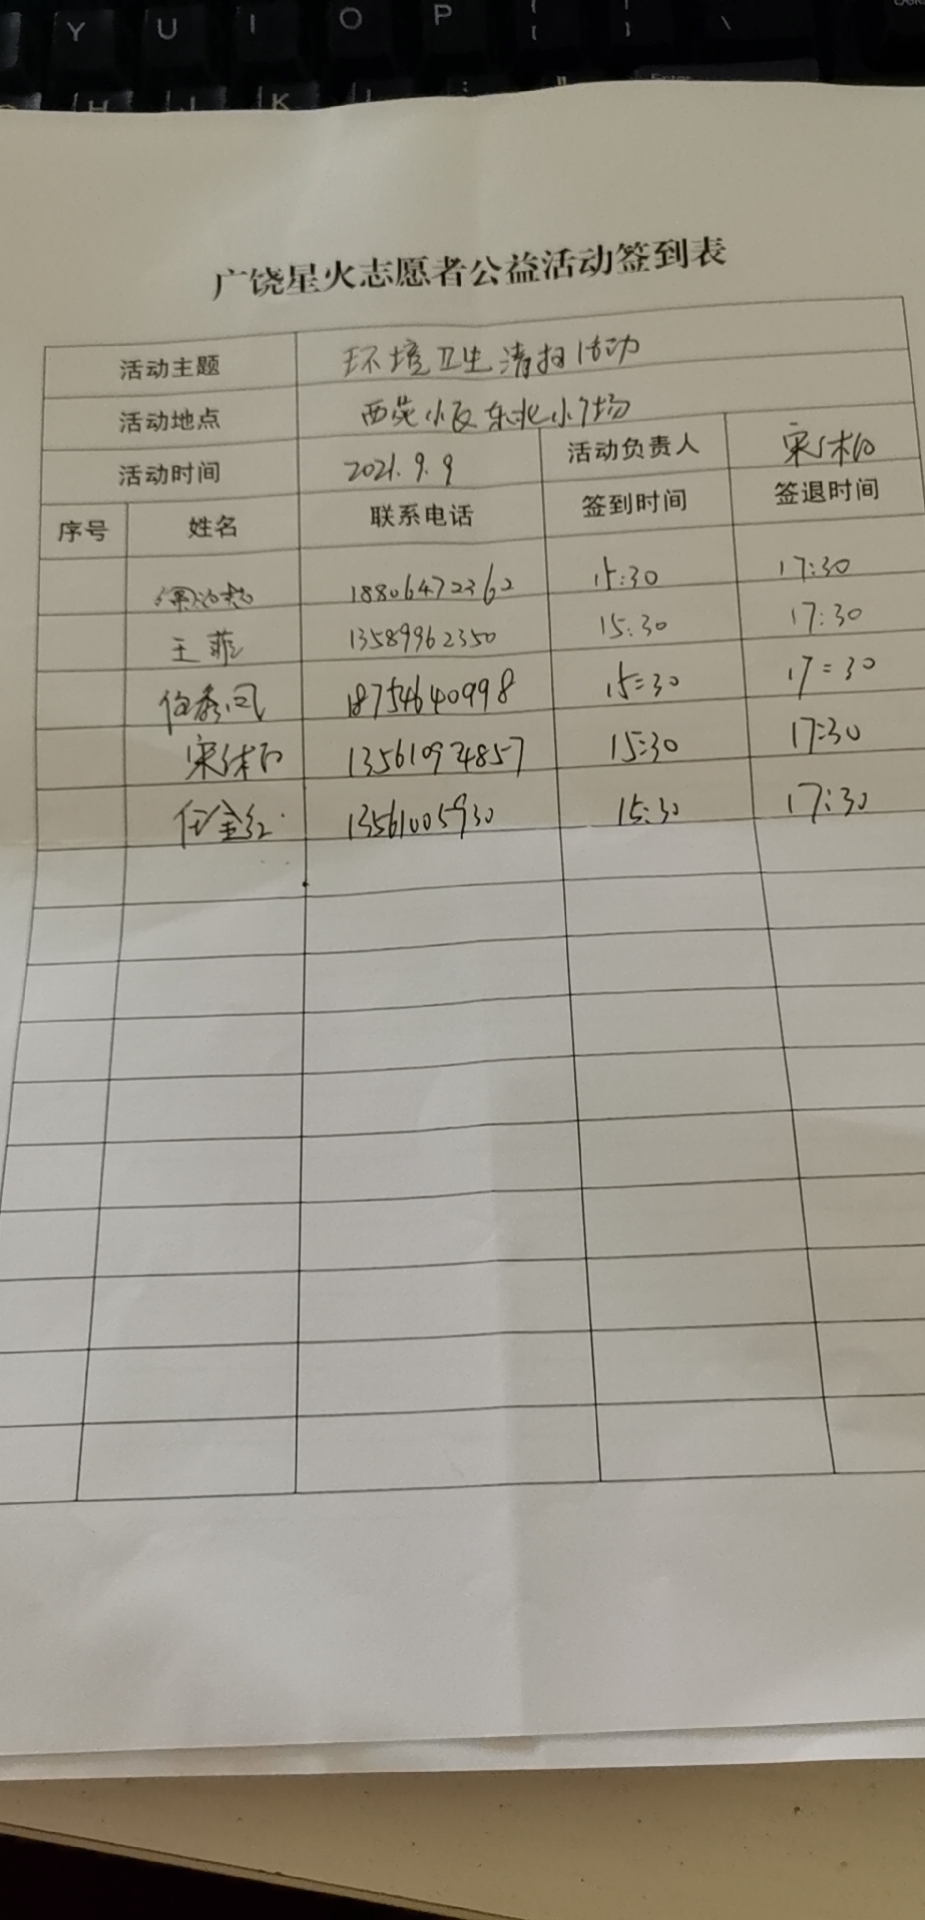 Y U I O P { [ } ] \
H J K L : ; " Enter
广饶星火志愿者公益活动签到表
活动主题 环境卫生清扫活动
活动地点 西苑小区东北小广场
活动时间 2021.9.9 活动负责人 宋
序号 姓名 联系电话 签到时间 签退时间
18806472362 15:30 17:30
王菲 13589962350 15:30 17:30
秀凤 18754640998 15:30 17:30
宋 135610924857 15:30 17:30
任金红 13561005930 15:30 17:30